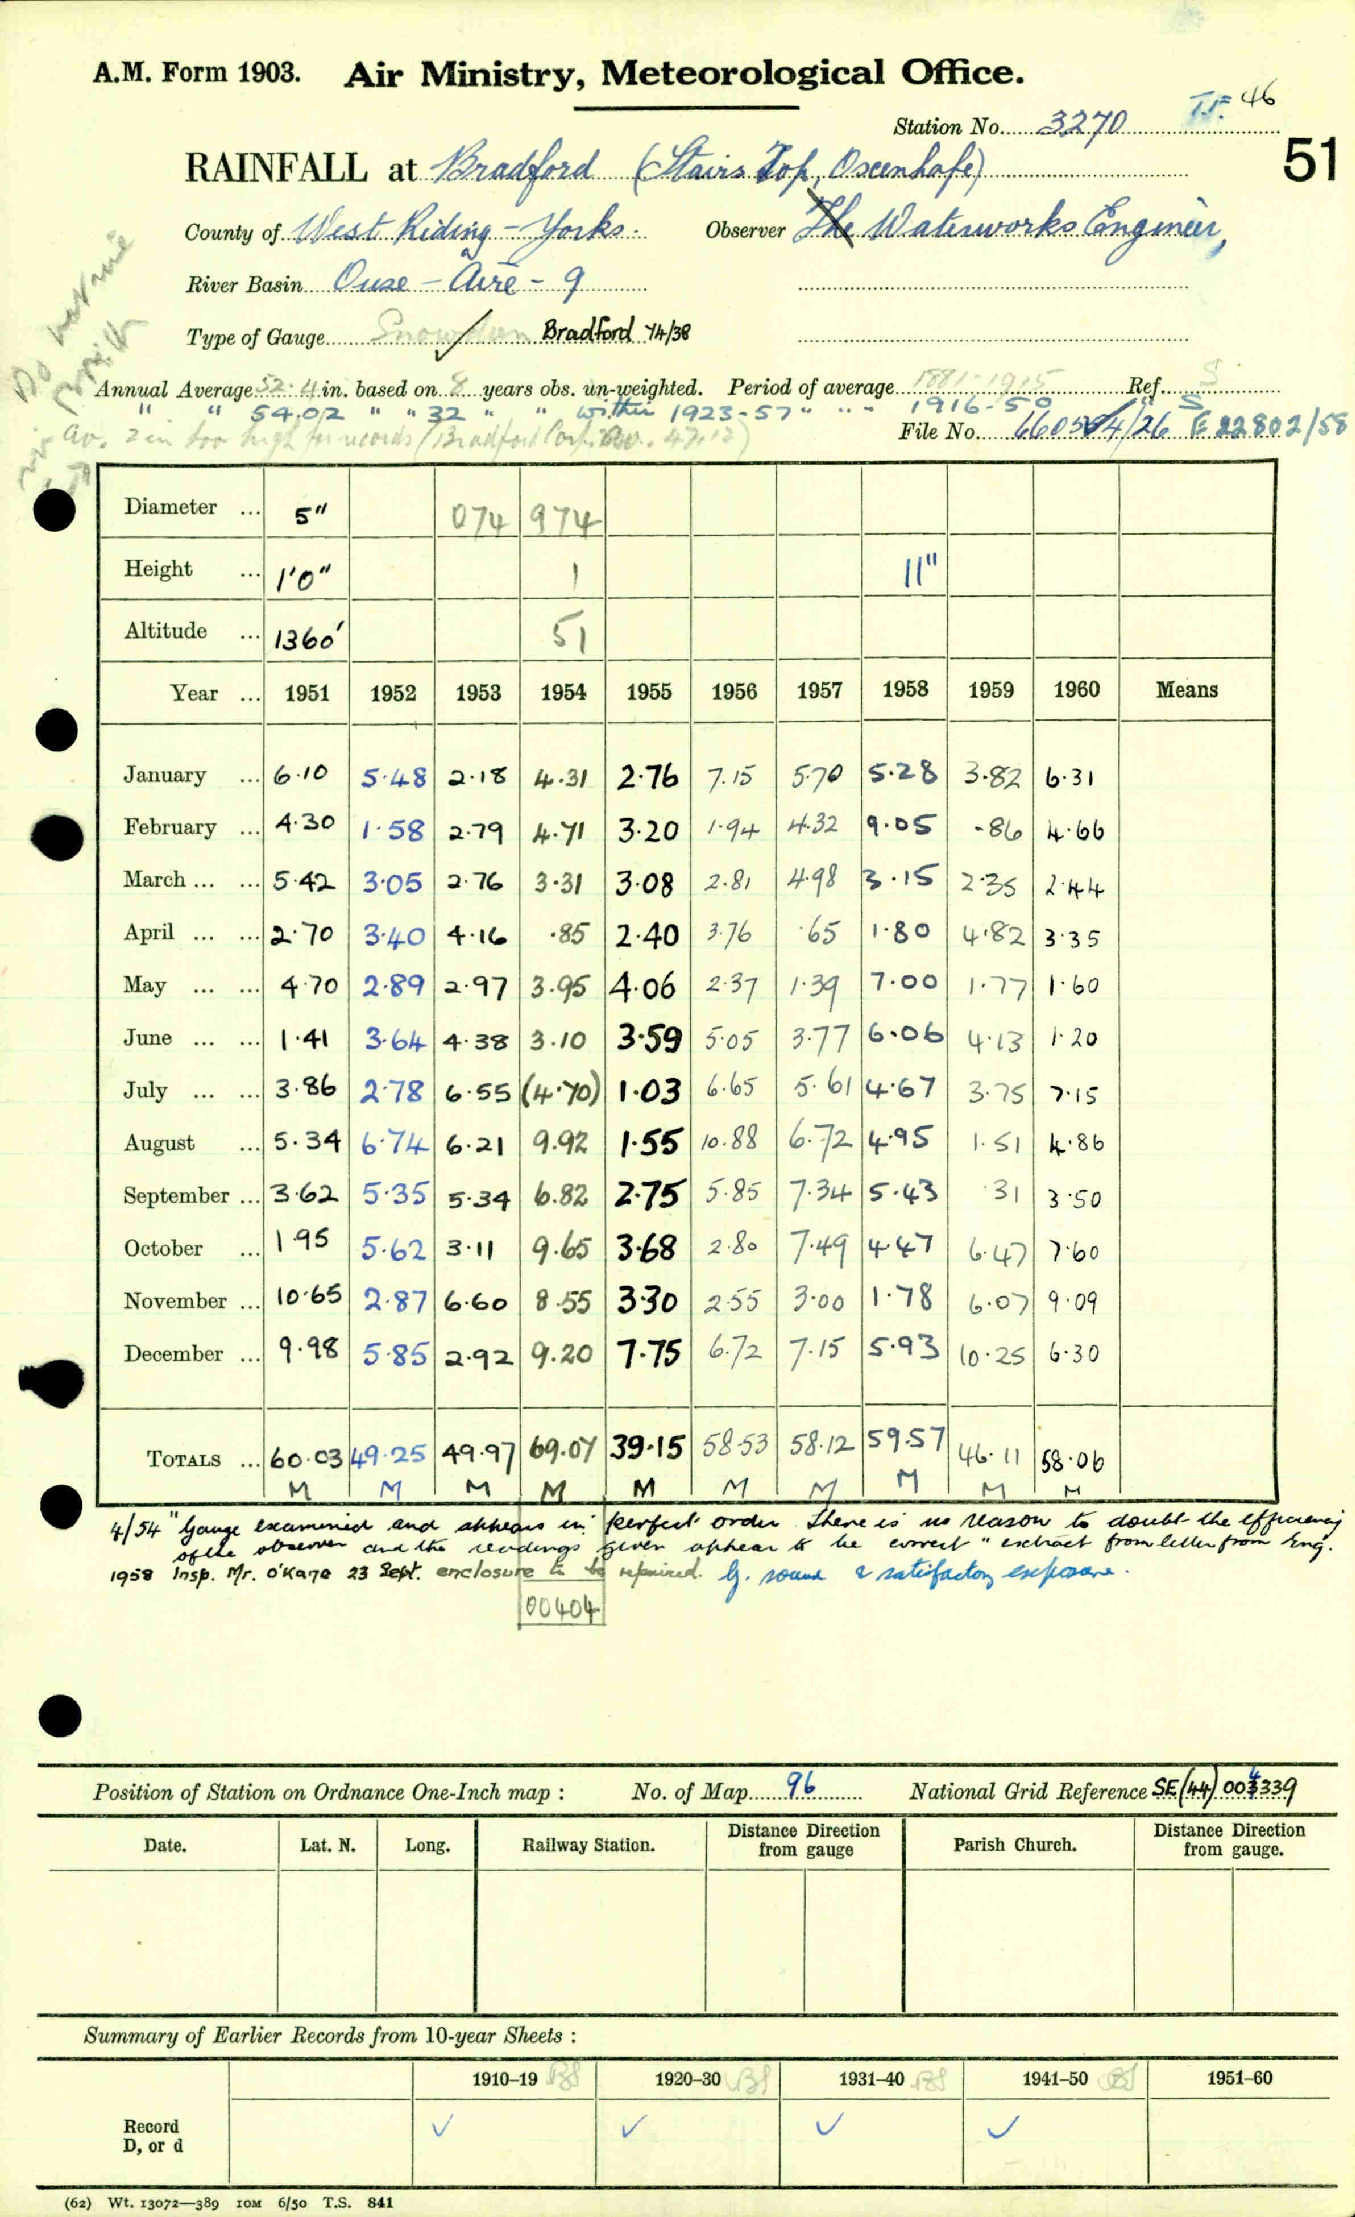 A.M. Form 1903. Air Ministry, Meteorological Office.
46
Station No. 3270
51
RAINFALL at Bradford (Stairs Top, Oxenhope)
County of West Riding - Yorks. Observer The Waterworks Engineer,
River Basin Ouse - Aire - 9
Type of Gauge Snowdon Bradford 14/38
Annual Average 52.4 in. based on 8 years obs. un-weighted. Period of average 1881-1915 Ref. S
" " 54.02 " " 32 " " within 1923-57 " " - 1916-50 S
Av. 2 in too high for records (Bradford Corp. Av. 47.12)
File No. 4/26 E 22802/58
Diameter ... 5" 074 974
Height ... 1'0" 1 11"
Altitude ... 1360' 51
Year ... 1951 1952 1953 1954 1955 1956 1957 1958 1959 1960 Means
January ... 6.10 5.48 2.18 4.31 2.76 7.15 5.70 5.28 3.82 6.31
February ... 4.30 1.58 2.79 4.71 3.20 1.94 4.32 9.05 .86 4.66
March ... ... 5.42 3.05 2.76 3.31 3.08 2.81 4.98 3.15 2.35 2.44
April ... ... 2.70 3.40 4.16 .85 2.40 3.76 .65 1.80 4.82 3.35
May ... ... 4.70 2.89 2.97 3.95 4.06 2.37 1.39 7.00 1.77 1.60
June ... ... 1.41 3.64 4.38 3.10 3.59 5.05 3.77 6.06 4.13 1.20
July ... ... 3.86 2.78 6.55 (4.70) 1.03 6.65 5.61 4.67 3.75 7.15
August ... 5.34 6.74 6.21 9.92 1.55 10.88 6.72 4.95 1.51 4.86
September ... 3.62 5.35 5.34 6.82 2.75 5.85 7.34 5.43 .31 3.50
October ... 1.95 5.62 3.11 9.65 3.68 2.80 7.49 4.47 6.47 7.60
November ... 10.65 2.87 6.60 8.55 3.30 2.55 3.00 1.78 6.07 9.09
December ... 9.98 5.85 2.92 9.20 7.75 6.72 7.15 5.93 10.25 6.30
TOTALS ... 60.03 49.25 49.97 69.07 39.15 58.53 58.12 59.57 46.11 58.06
M M M M M M M M M M
4/54 "Gauge examined and appears in perfect order There is no reason to doubt the efficiency
of the observer and the readings given appear to be correct" extract from letter from Eng.
1958 Insp. Mr. O'Kane 23 Sept. enclosure to be repaired. G. sound & satisfactory exposure.
00404
Position of Station on Ordnance One-Inch map : No. of Map 96 National Grid Reference SE (44) 004339
Date. Lat. N. Long. Railway Station. Distance from Direction gauge Parish Church. Distance from Direction gauge.
Summary of Earlier Records from 10-year Sheets :
1910–19 1920–30 1931–40 1941–50 1951–60
Record
D, or d
(62) Wt. 13072—389 10M 6/50 T.S. 841